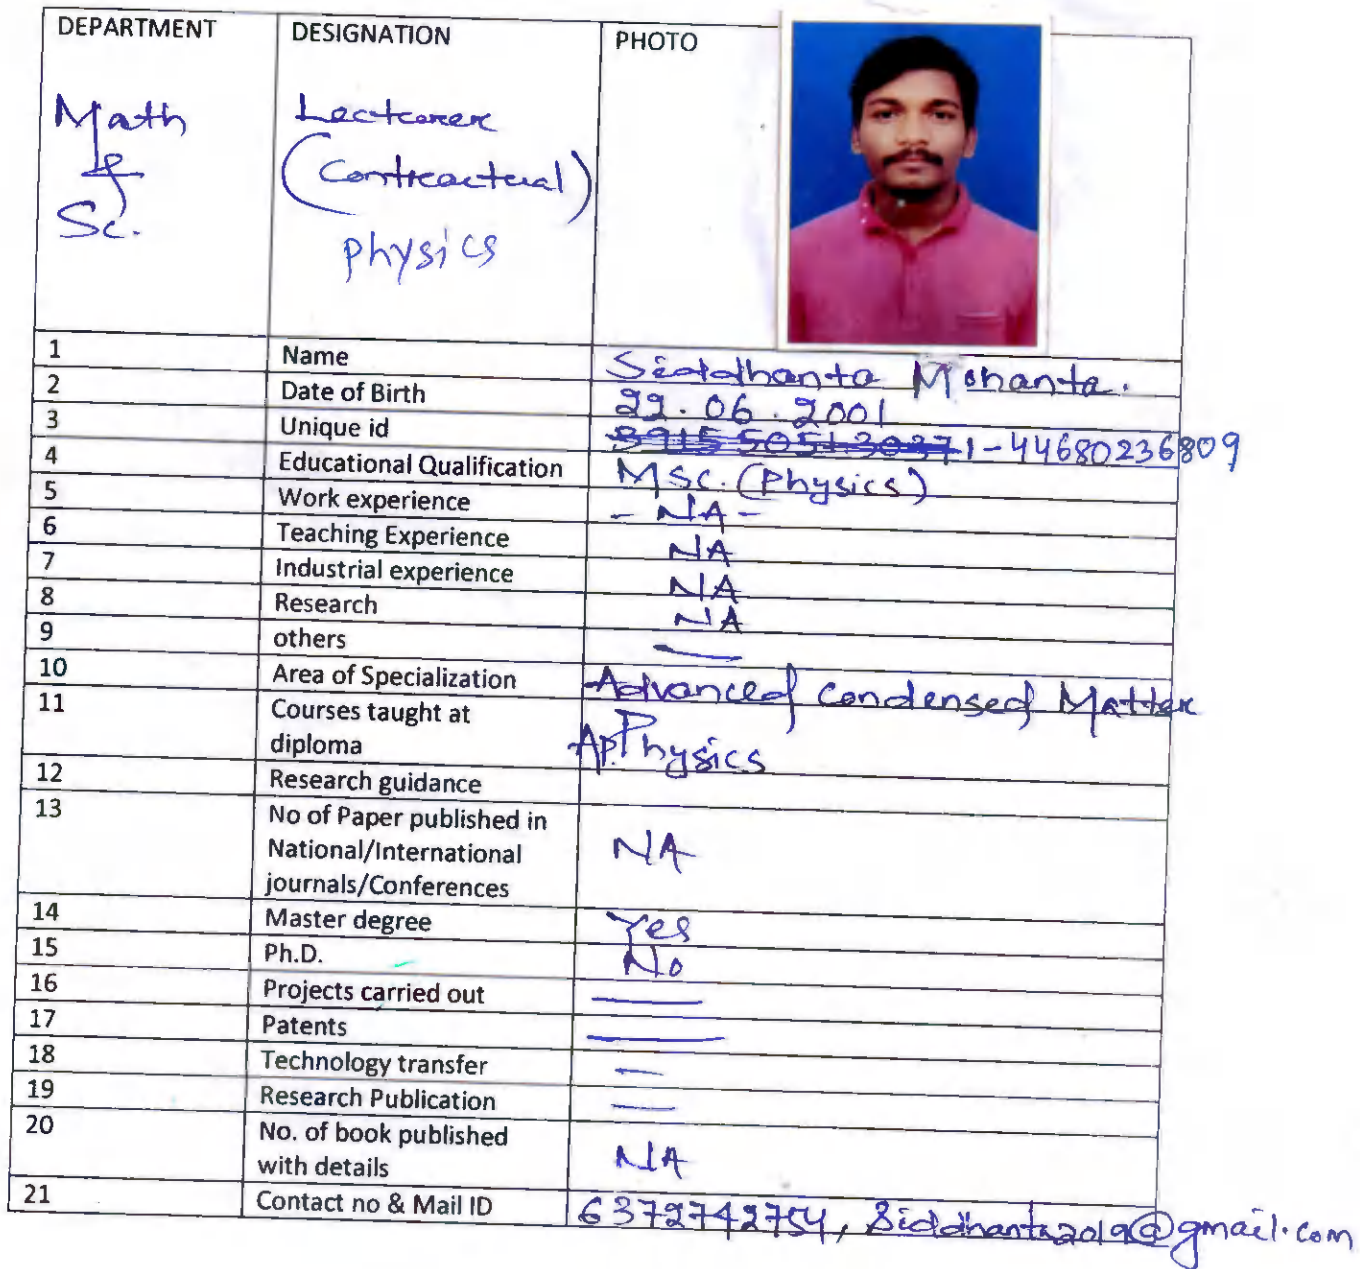 DEPARTMENT DESIGNATION PHOTO
Math Lecturer
& (Contractual)
Sc. physics
1 Name Siddhanta Mohanta.
2 Date of Birth 22.06.2001
3 Unique id 1-44680236809
4 Educational Qualification MSc. (Physics)
5 Work experience - NA -
6 Teaching Experience NA
7 Industrial experience NA
8 Research NA
9 others
10 Area of Specialization Advanced Condensed Matter
11 Courses taught at
diploma Ap. Physics
12 Research guidance
13 No of Paper published in
National/International NA
journals/Conferences
14 Master degree Yes
15 Ph.D. No
16 Projects carried out
17 Patents
18 Technology transfer
19 Research Publication
20 No. of book published
with details NA
21 Contact no & Mail ID 6372742754, Siddhanta2019@gmail.com